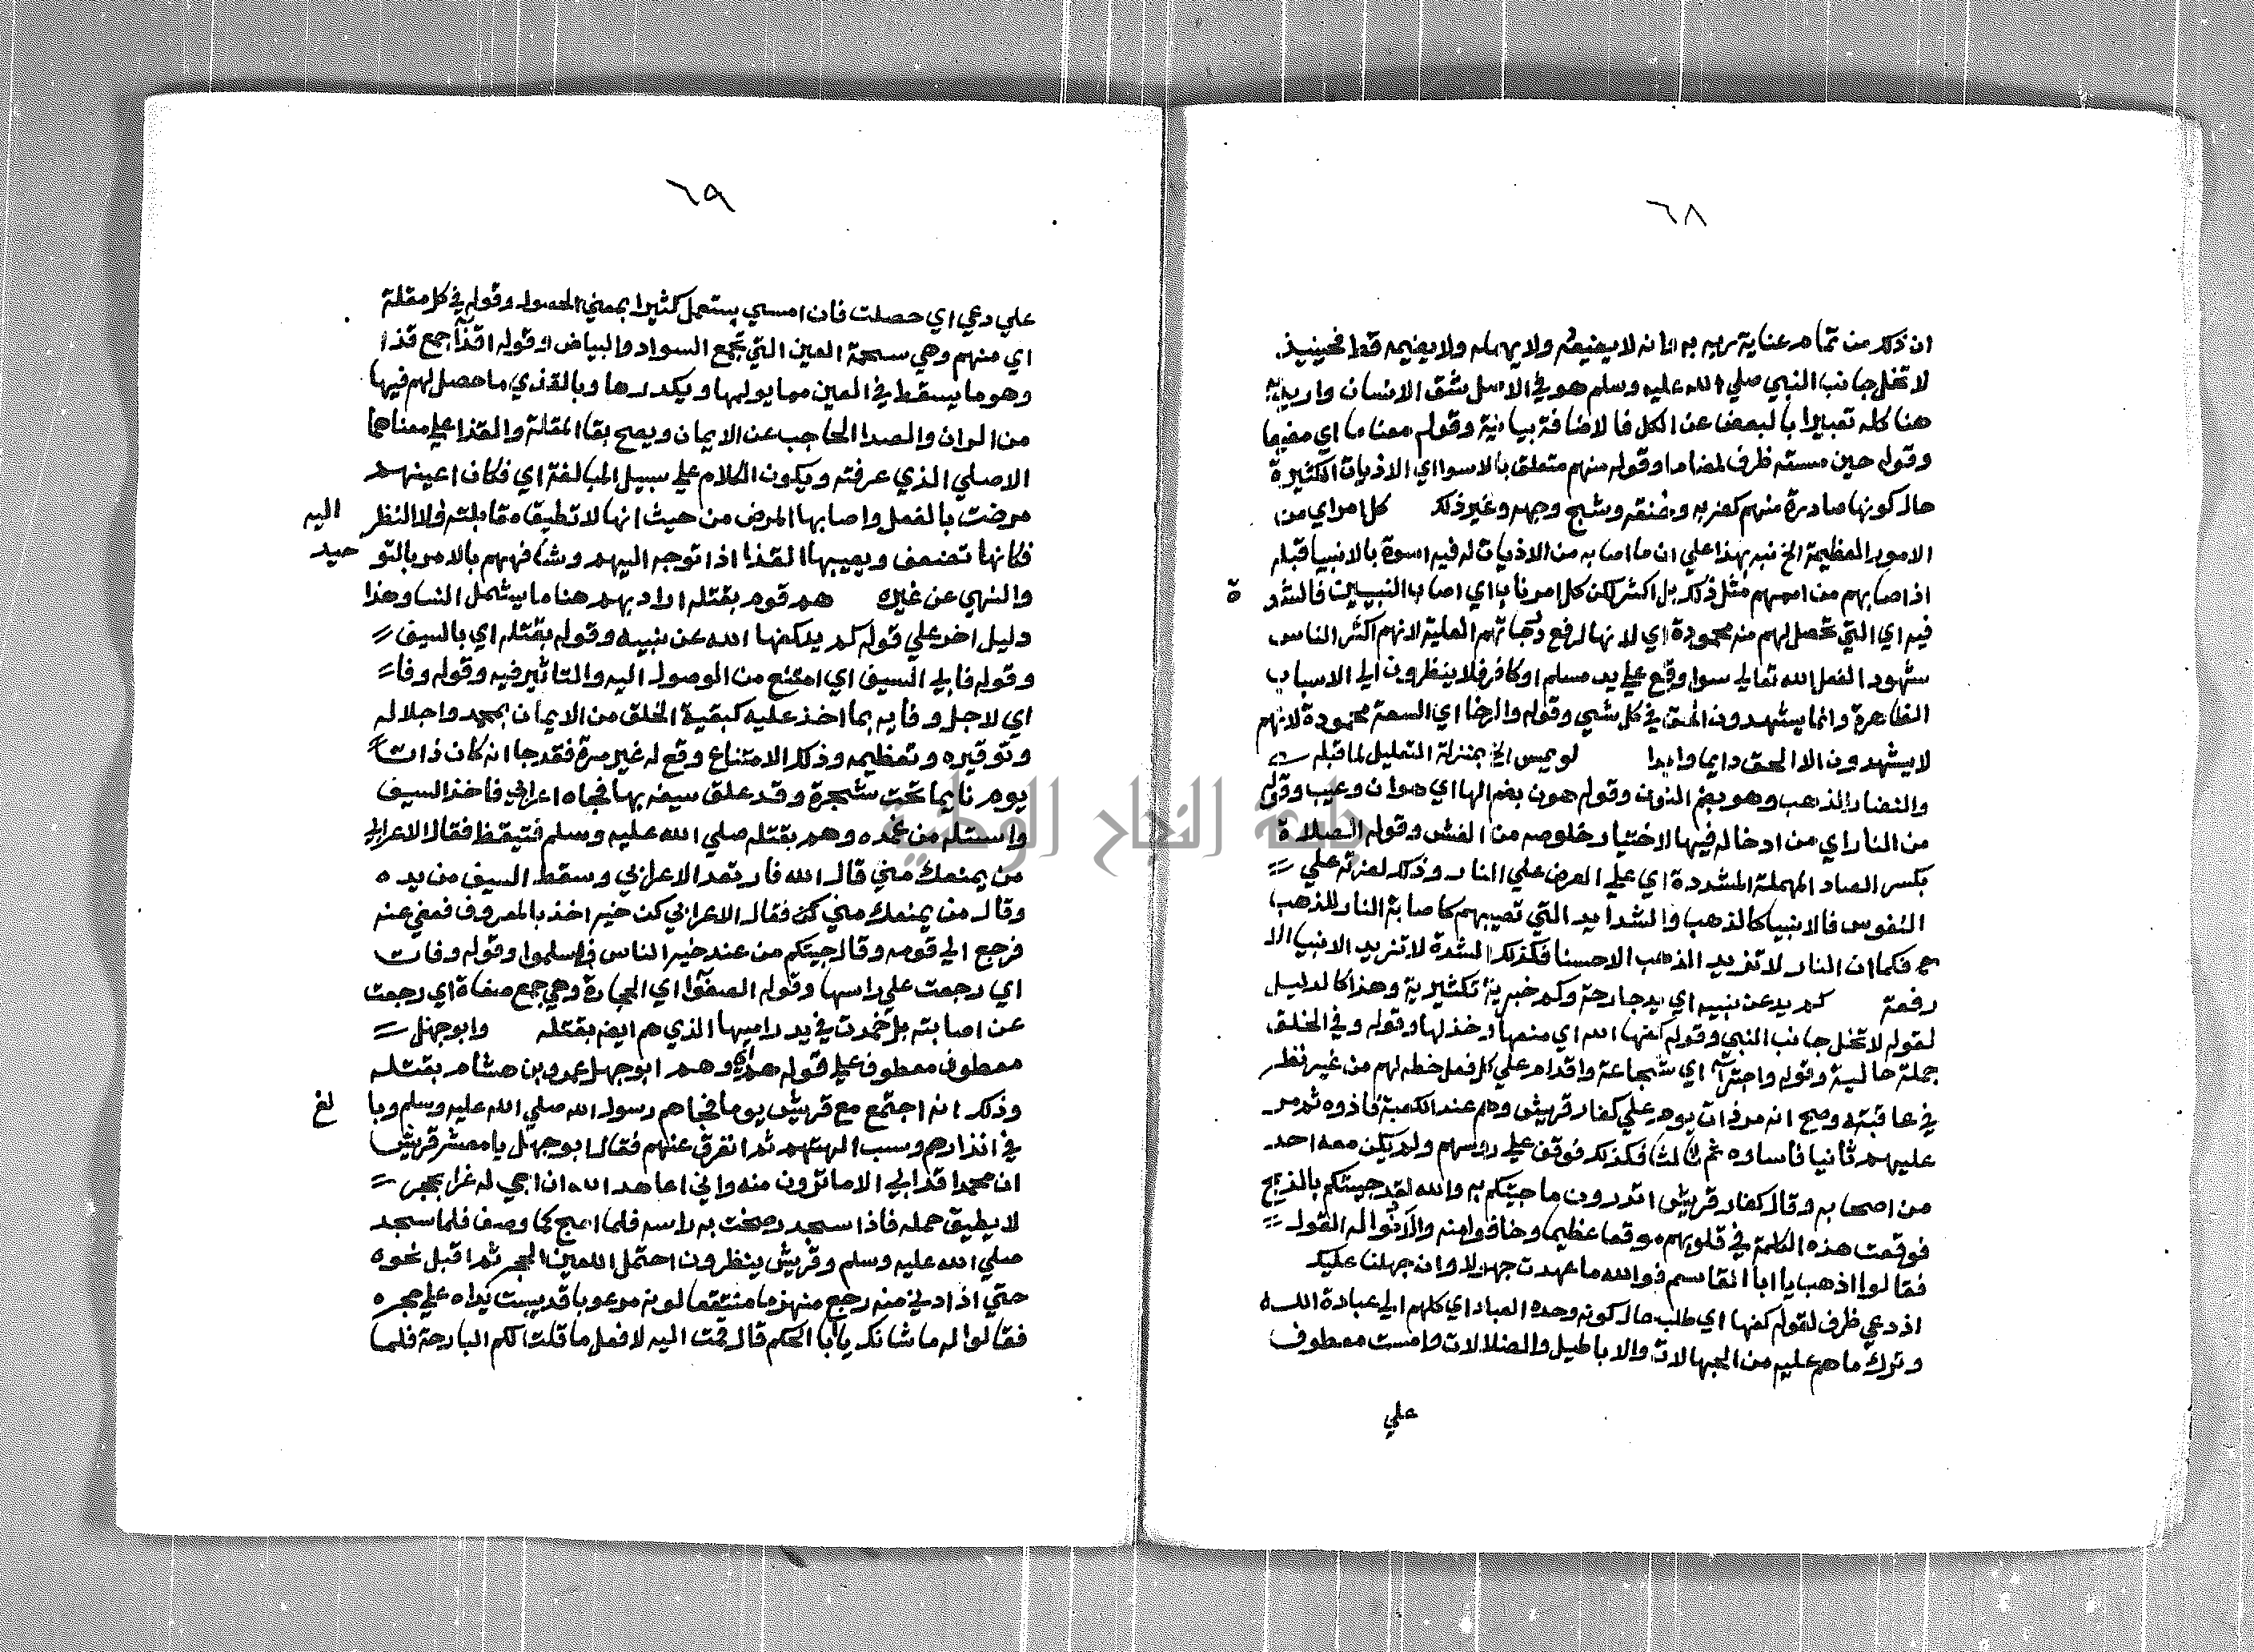 ٦٨
ان ذلك من تمام عناية ربه به انه لا يضيعه ولا يهمله ولا يضيمه قط فحينيذ
لا تخل جانب النبي صلي الله عليه وسلم هو في الاصل شق الانسان واريد به
هنا كله تعبيرا بالبعض عن الكل فالاضافة بيانية وقوله مضاما اي مضيما
وقوله حين مسته ظرف لمضاما وقوله منهم متعلق بالاسوا اي الاذيات الكثيرة
حال كونها صادرة منهم كضربه وخنقه وشج وجهه وغير ذلك كل امر اي من
الامور العظيمة الخ نبه بهذا علي ان ما اصابه من الاذيات له فيه اسوة بالانبيا قبله
اذ اصابهم من اممهم مثل ذلك بل اكثر لكن كل امر ناب اي اصاب النبيين فالشدة
فيه اي التي تحصل لهم منه محمودة اي لانها لرفع درجاتهم العلية لانهم اكثر الناس
شهود الفعل الله تعالي سوا وقع علي يد مسلم او كافر فلا ينظرون الي الاسباب
الظاهرة وانما يشهدون الحق في كل شي وقوله والرخا اي السعة محمودة لانهم
لا يشهدون الا الحق دايما وابدا لو يمس الخ بمنزلة التعليل لما قبله
والنضار الذهب وهو بضم النون وقوله هون بضم الها اي هوان وعيب وقوله
من النار اي من ادخاله فيها لاختيار خلوصه من الغش وقوله الصلاة
بكسر الصاد المهملة المشددة اي علي العرض علي النار وذلك لعزته علي
النفوس فالانبيا كالذهب والشدايد التي تصيبهم كاصابة النار للذهب
فكما ان النار لا تزيد الذهب الا حسنا فكذلك الشدة لا تزيد الانبيا الا
رفعة كم يد عن نبيه اي يد جارحة وكم خبرية تكثيرية وهذا كالدليل
لقوله لا تخل جانب النبي وقوله كفها الله اي منعها وخذلها وقوله وفي الخلق
جملة حالية وقوله واجترآ اي شجاعة واقدام علي كل فعل خطه لهم من غير نظر
في عاقبته وصح انه مر ذات يوم علي كفار قريش وهم عند الكعبة فاذوه ثم مر
عليهم ثانيا فاساوه ثم ثالثا فكذلك فوقف علي روسهم ولم يكن معه احد
من اصحابه وقال كفار قريش اتدرون ما جيتكم به والله لقد جيتكم بالذبح
فوقعت هذه الكلمة في قلوبهم موقعا عظيما وخافوا منه والانوا له القول
فقالوا اذهب يا ابا القاسم فوالله ما عهدت جهولا وان جهلنا عليك
اذ دعي ظرف لقوله كفها اي طلب حال كونه وحده العباد اي كلهم الي عبادة الله
وترك ما هم عليه من الجهالات والاباطيل والضلالات وامست معطوف
علي
٦٩
علي دعي اي حصلت فان امسي يستعمل كثيرا بمعني الحصول وقوله في كل مقلة
اي منهم وهي سحمة العين التي تجمع السواد والبياض وقوله اقذآ جمع قذا
وهو ما يسقط في العين مما يولمها ويكدرها وبالقذي ما حصل لهم فيها
من الران والصدا الحاجب عن الايمان ويصح بقا المقلة والقذا علي معناهما
الاصلي الذي عرفته ويكون الكلام علي سبيل المبالغة اي فكان اعينهم
مرضت بالفعل واصابها المرض من حيث انها لا تطيق مقابلته ولا النظر اليه
فكانها تضعف ويصيبها القذا اذا توجه اليهم وشافههم بالامر بالتوحيد
والنهي عن غيره هم قوم بقتله اراد بهم هنا ما يشمل النسا وهذا
دليل اخر علي قوله كم يد كفها الله عن نبيه وقوله بقتله اي بالسيف
وقوله فابي السيف اي امتنع من الوصول اليه والتاثير فيه وقوله وفا
اي لاجل وفايه بما اخذ عليه كبقية الخلق من الايمان بمحمد واجلاله
وتوقيره وتعظيمه وذلك الامتناع وقع له غير مرة فقد جا انه كان ذات
يوم نايما تحت شجرة وقد علق سيفه بها فجاه اعرابي فاخذ السيف
واستله من غمده وهم بقتله صلي الله عليه وسلم فتيقظ فقال الاعرابي
من يمنعك مني قال الله فارتعد الاعرابي وسقط السيف من يده
وقال من يمنعك مني كن فقال الاعرابي كن خير اخذ بالمعروف فعفي عنه
فرجع الي قومه وقال جيتكم من عند خير الناس فاسلموا وقوله وفات
اي رجعت علي راسها وقوله الصفوا اي الحجارة وهي جمع صفاة اي رجعت
عن اصابته بل خمدت في يد راميها الذي هم ايضه بقتله وابو جهل
معطوف معطوف علي قوله هم اي وهم ابو جهل عمرو بن هشام بقتله
وذلك انه اجتمع مع قريش يوما فجاهم رسول الله صلي الله عليه وسلم وبالغ
في انذارهم وسب الهتهم ثم انفرق عنهم فقال ابو جهل يا معشر قريش
ان محمدا قد ابي الا ما ترون منه واني اعاهد الله ان اجي له غرا بحجر
لا يطيق حمله فاذا سجد رضخت به راسه فلما اصبح كما وصف فلما سجد
صلي الله عليه وسلم وقريش ينظرون احتمل اللعين الحجر ثم اقبل نحوه
حتي اذا دني منه رجع منهزما منتقعا لونه مرعوبا قد يبست يداه علي حجره
فقالوا له ما شانك يا ابا الحكم قال قمت اليه لافعل ما قلت لكم البارحة فلما